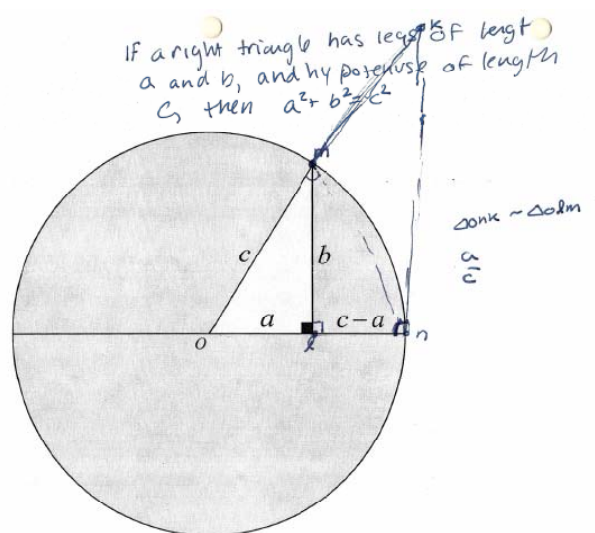 If a right triangle has legs of lengt
a and b, and hypotenuse of length
C, then a² + b² = c²
k
m
c
b
△onk ~ △olm
a
c
a
c − a
o
l
n